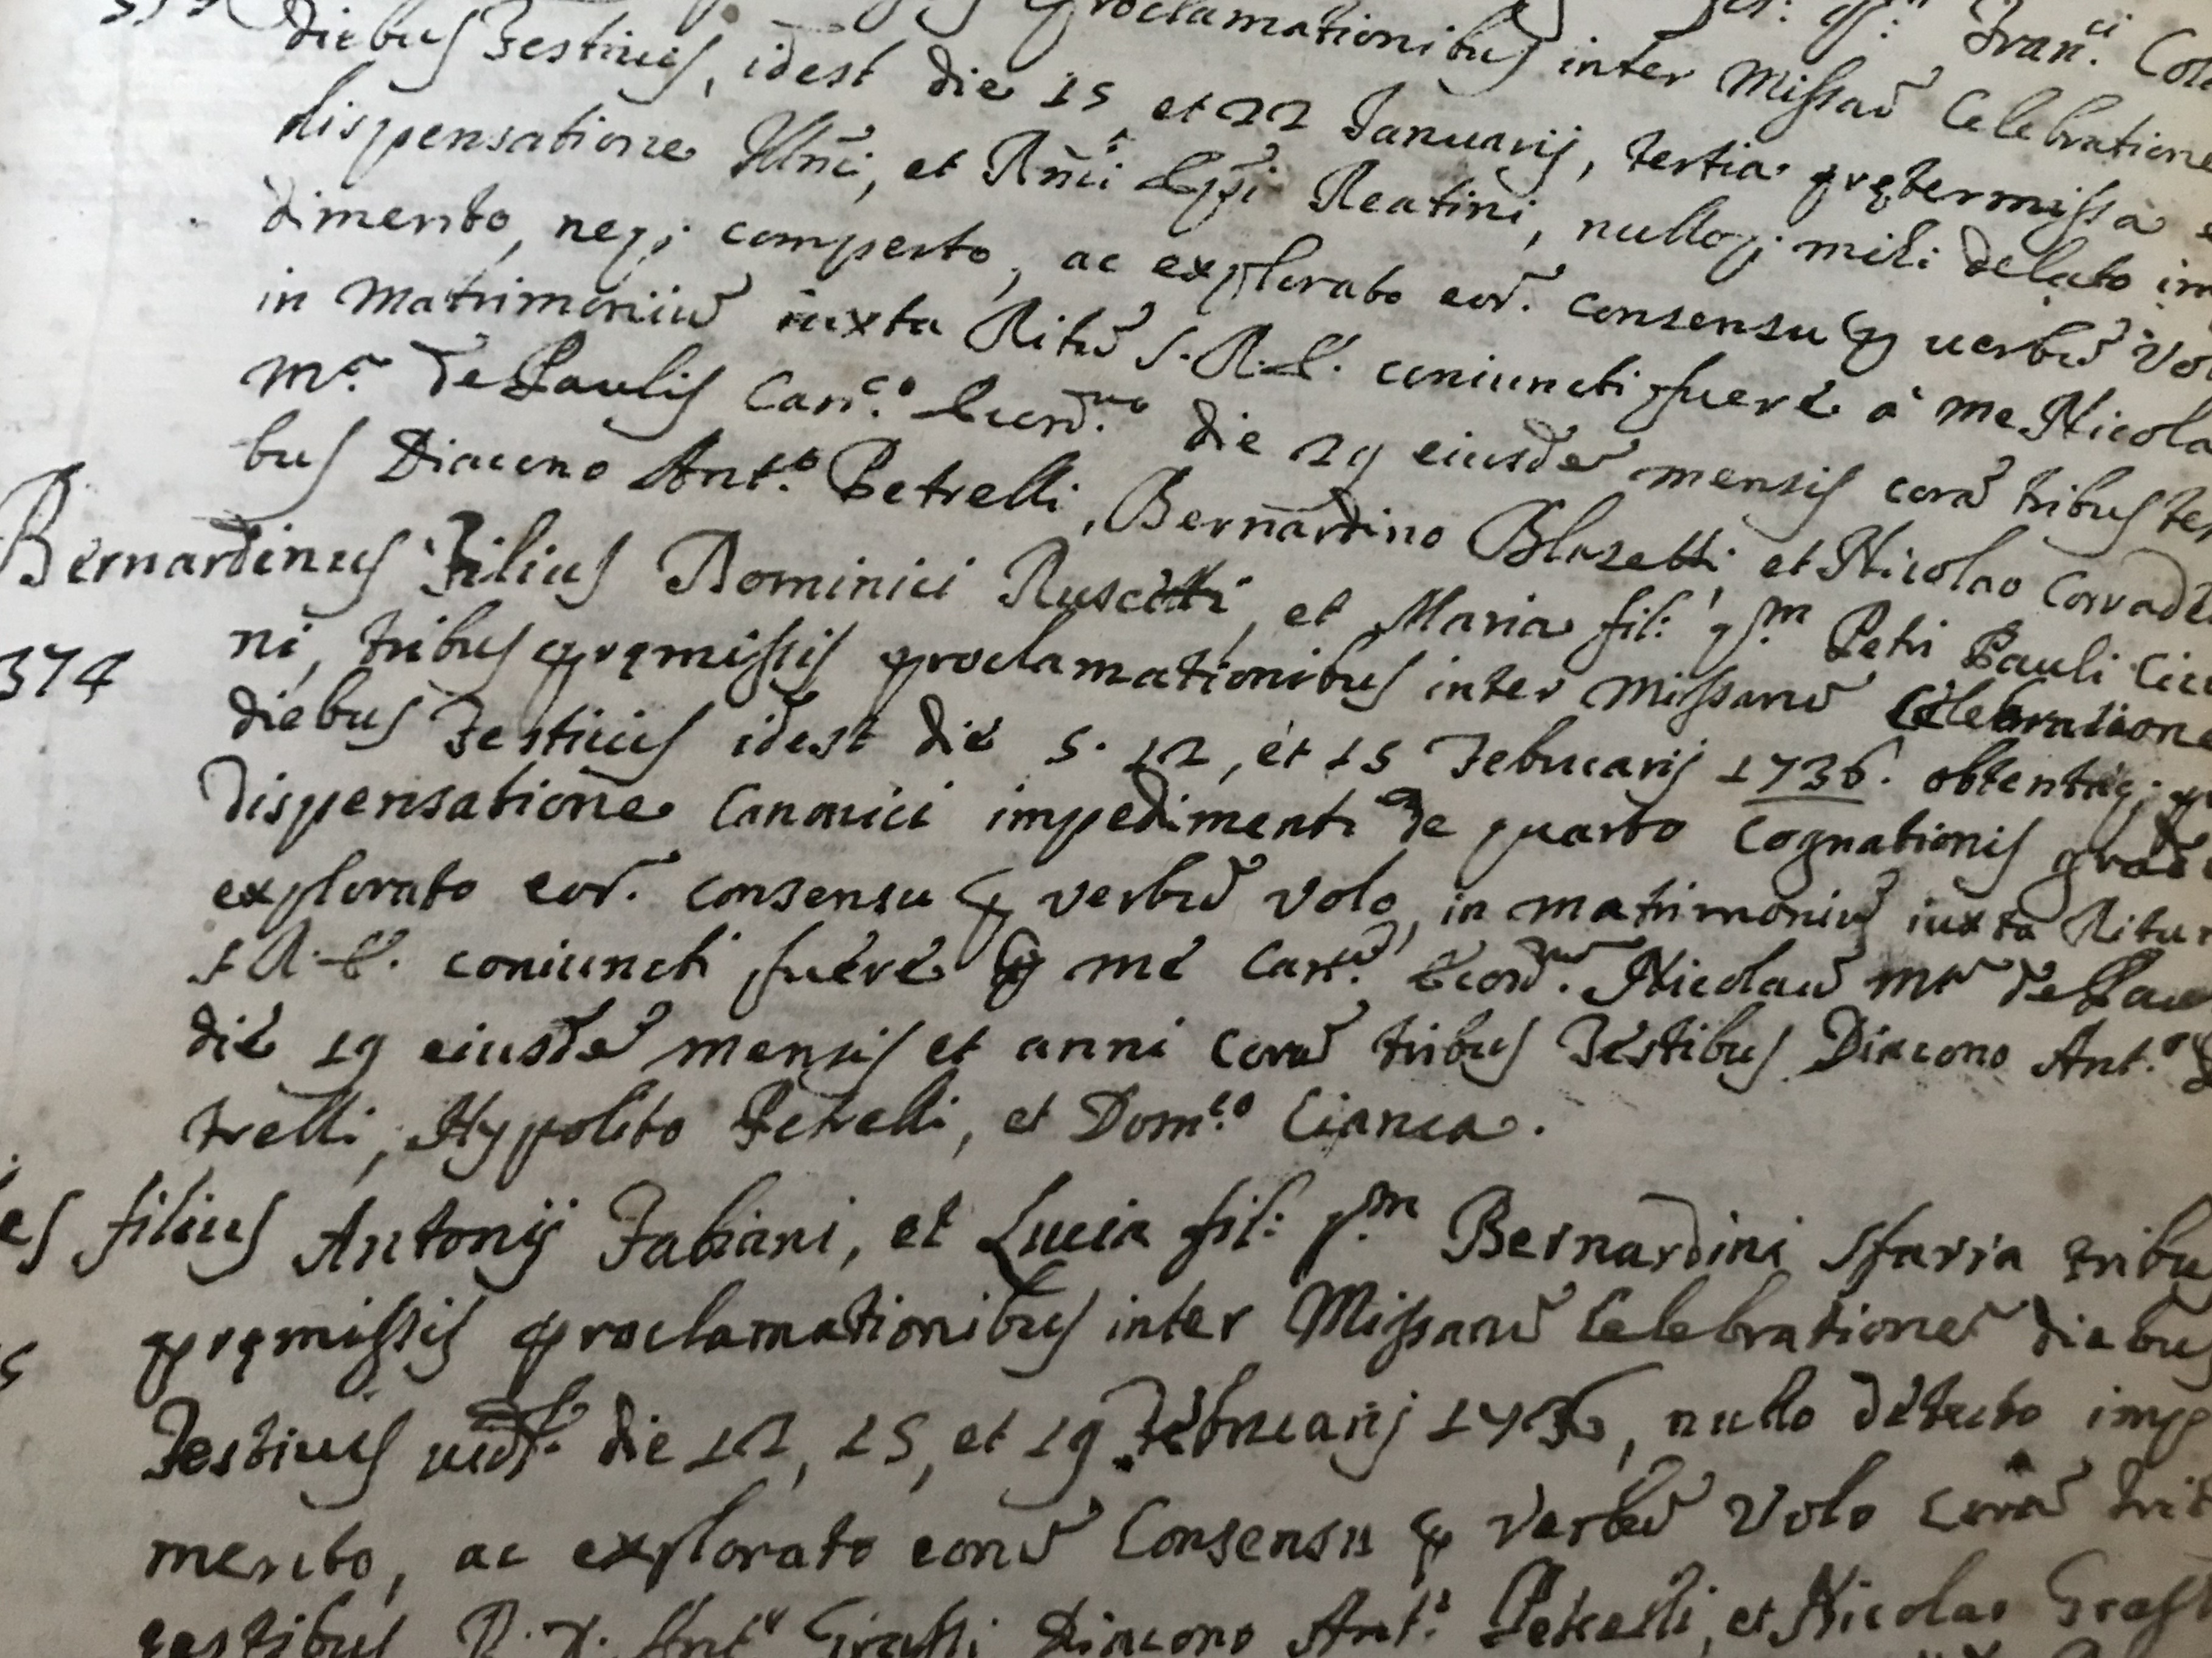 proclamationibus inter Missaū Celebratione
diebus Festivis, idest die 15 et 22 Januarij, tertia prętermissa
dispensatione Illm̄i, et Rm̄i Epi Reatini, nulloq; mihi delato im
dimento, neq; comperto, ac explorato eor. consensu p verbū vo
in Matrimoniū iuxta Ritū S. R. E. coniuncti fuere à me Nicola
Mᵃ. de Paulis Can.ᶜᵒ Econ.ᵐᵒ die 29 eiusdē mensis corā tribus te
bus Diacono Ant.º Petrelli, Bernardino Blasetti, et Nicolao Corrade
Bernardinus Filius Dominici Ruscitti, et Maria fil: qm Petri Pauli Cice
ni, tribus pręmissis proclamationibus inter Missarū Celebratione
374 diebus Festivis idest die 5. 12, et 15 Februarij 1736. obtentaq;
dispensatione Canonici impedimenti de quarto Cognationis grad
explorato eor. consensu p verbū volo, in matrimoniū iuxta Ritu
S R. E. coniuncti fuere p me Can.ᵘ Econ.ᵘ Nicolaū Mᵃ de Pau
die 19 eiusdē mensis et anni corā tribus Testibus Diacono Ant.º
trelli, Hyppolito Petrelli, et Dom.ᶜᵒ Cianca.
es filius Antonij Fabiani, et Lucia fil: qm Bernardini Sfarra tribu
pręmissis proclamationibus inter Missarū Celebrationē diebus
Festivis die 12, 15, et 19 Februarij 1736, nullo detecto imp
mento, ac explorato eorū Consensu p verbū Volo corā trib
testibus Ant.º Grassi Diacono Ant.º Petrelli, et Nicolao Grass